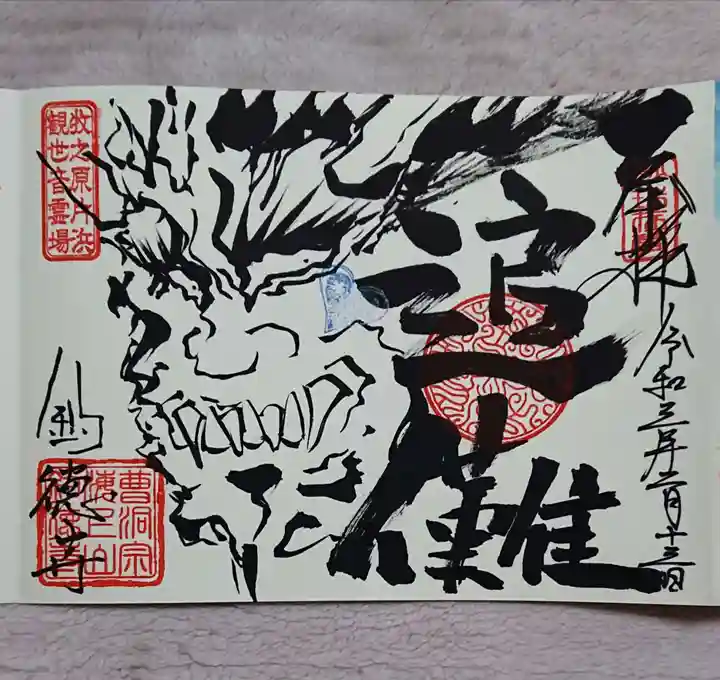 奉拝
令和三年二月十三日
追儺
牧之原片浜
観世音霊場
徳寺
曹洞宗